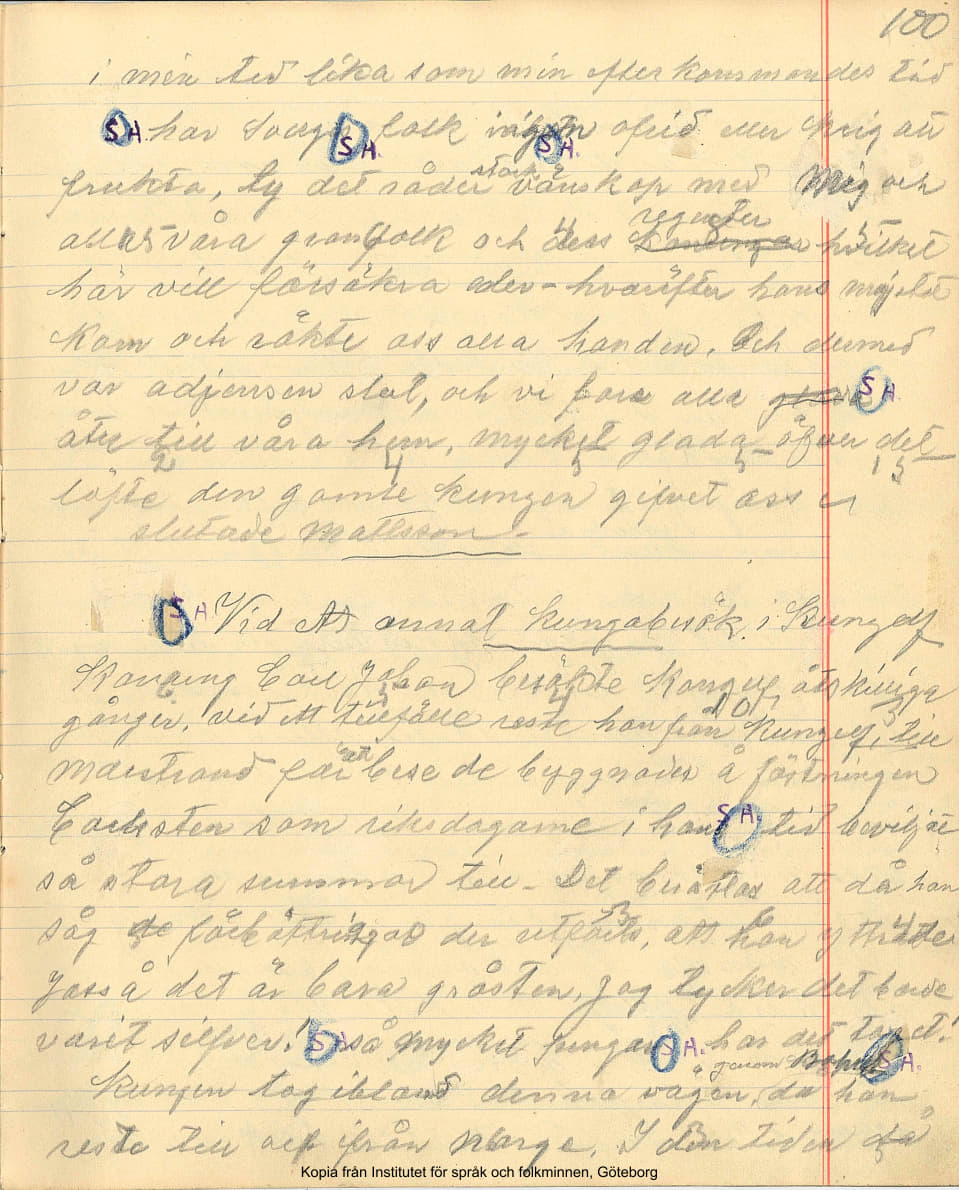 100
i min tid lika som min efterkommandes tid
S H. har Sverges folk ingen ofrid eller krig att
S H. S H.
frukta, ty det råder stark vänskap med Mig och
alla våra granfolk och dess regenter hvilket
här vill försäkra eder - hvaröfter hans majstet
kom och räkte oss alla handen. Och dermed
var adjensen slut, och vi foro alla S H.
åter till våra hem, mycket glada öfver det
löfte den gamle kungen gifvet oss
slutade Mattsson.
S H. Vid ett annat kungabesök i Kungelf
Konung Carl Johan besökte Kongelf åtskiliga
gånger, vid ett tillfälle reste han från Kungelf, till
Marstrand för att bese de byggnader å fästningen
Carlsten som riksdagarne i hans S H. tid beviljat
så stora summor till - Det berättas att då han
såg de förbättringar der utförts, att han yttrade
Jasså det är bara gråsten, jag tycker det borde
varit silfver! S H. så mycket pengar S H. har det tagit!
Kungen tog ibland denna vägen, genom Bohus S H. då han
reste till och ifrån Norge. I den tiden då
Kopia från Institutet för språk och folkminnen, Göteborg